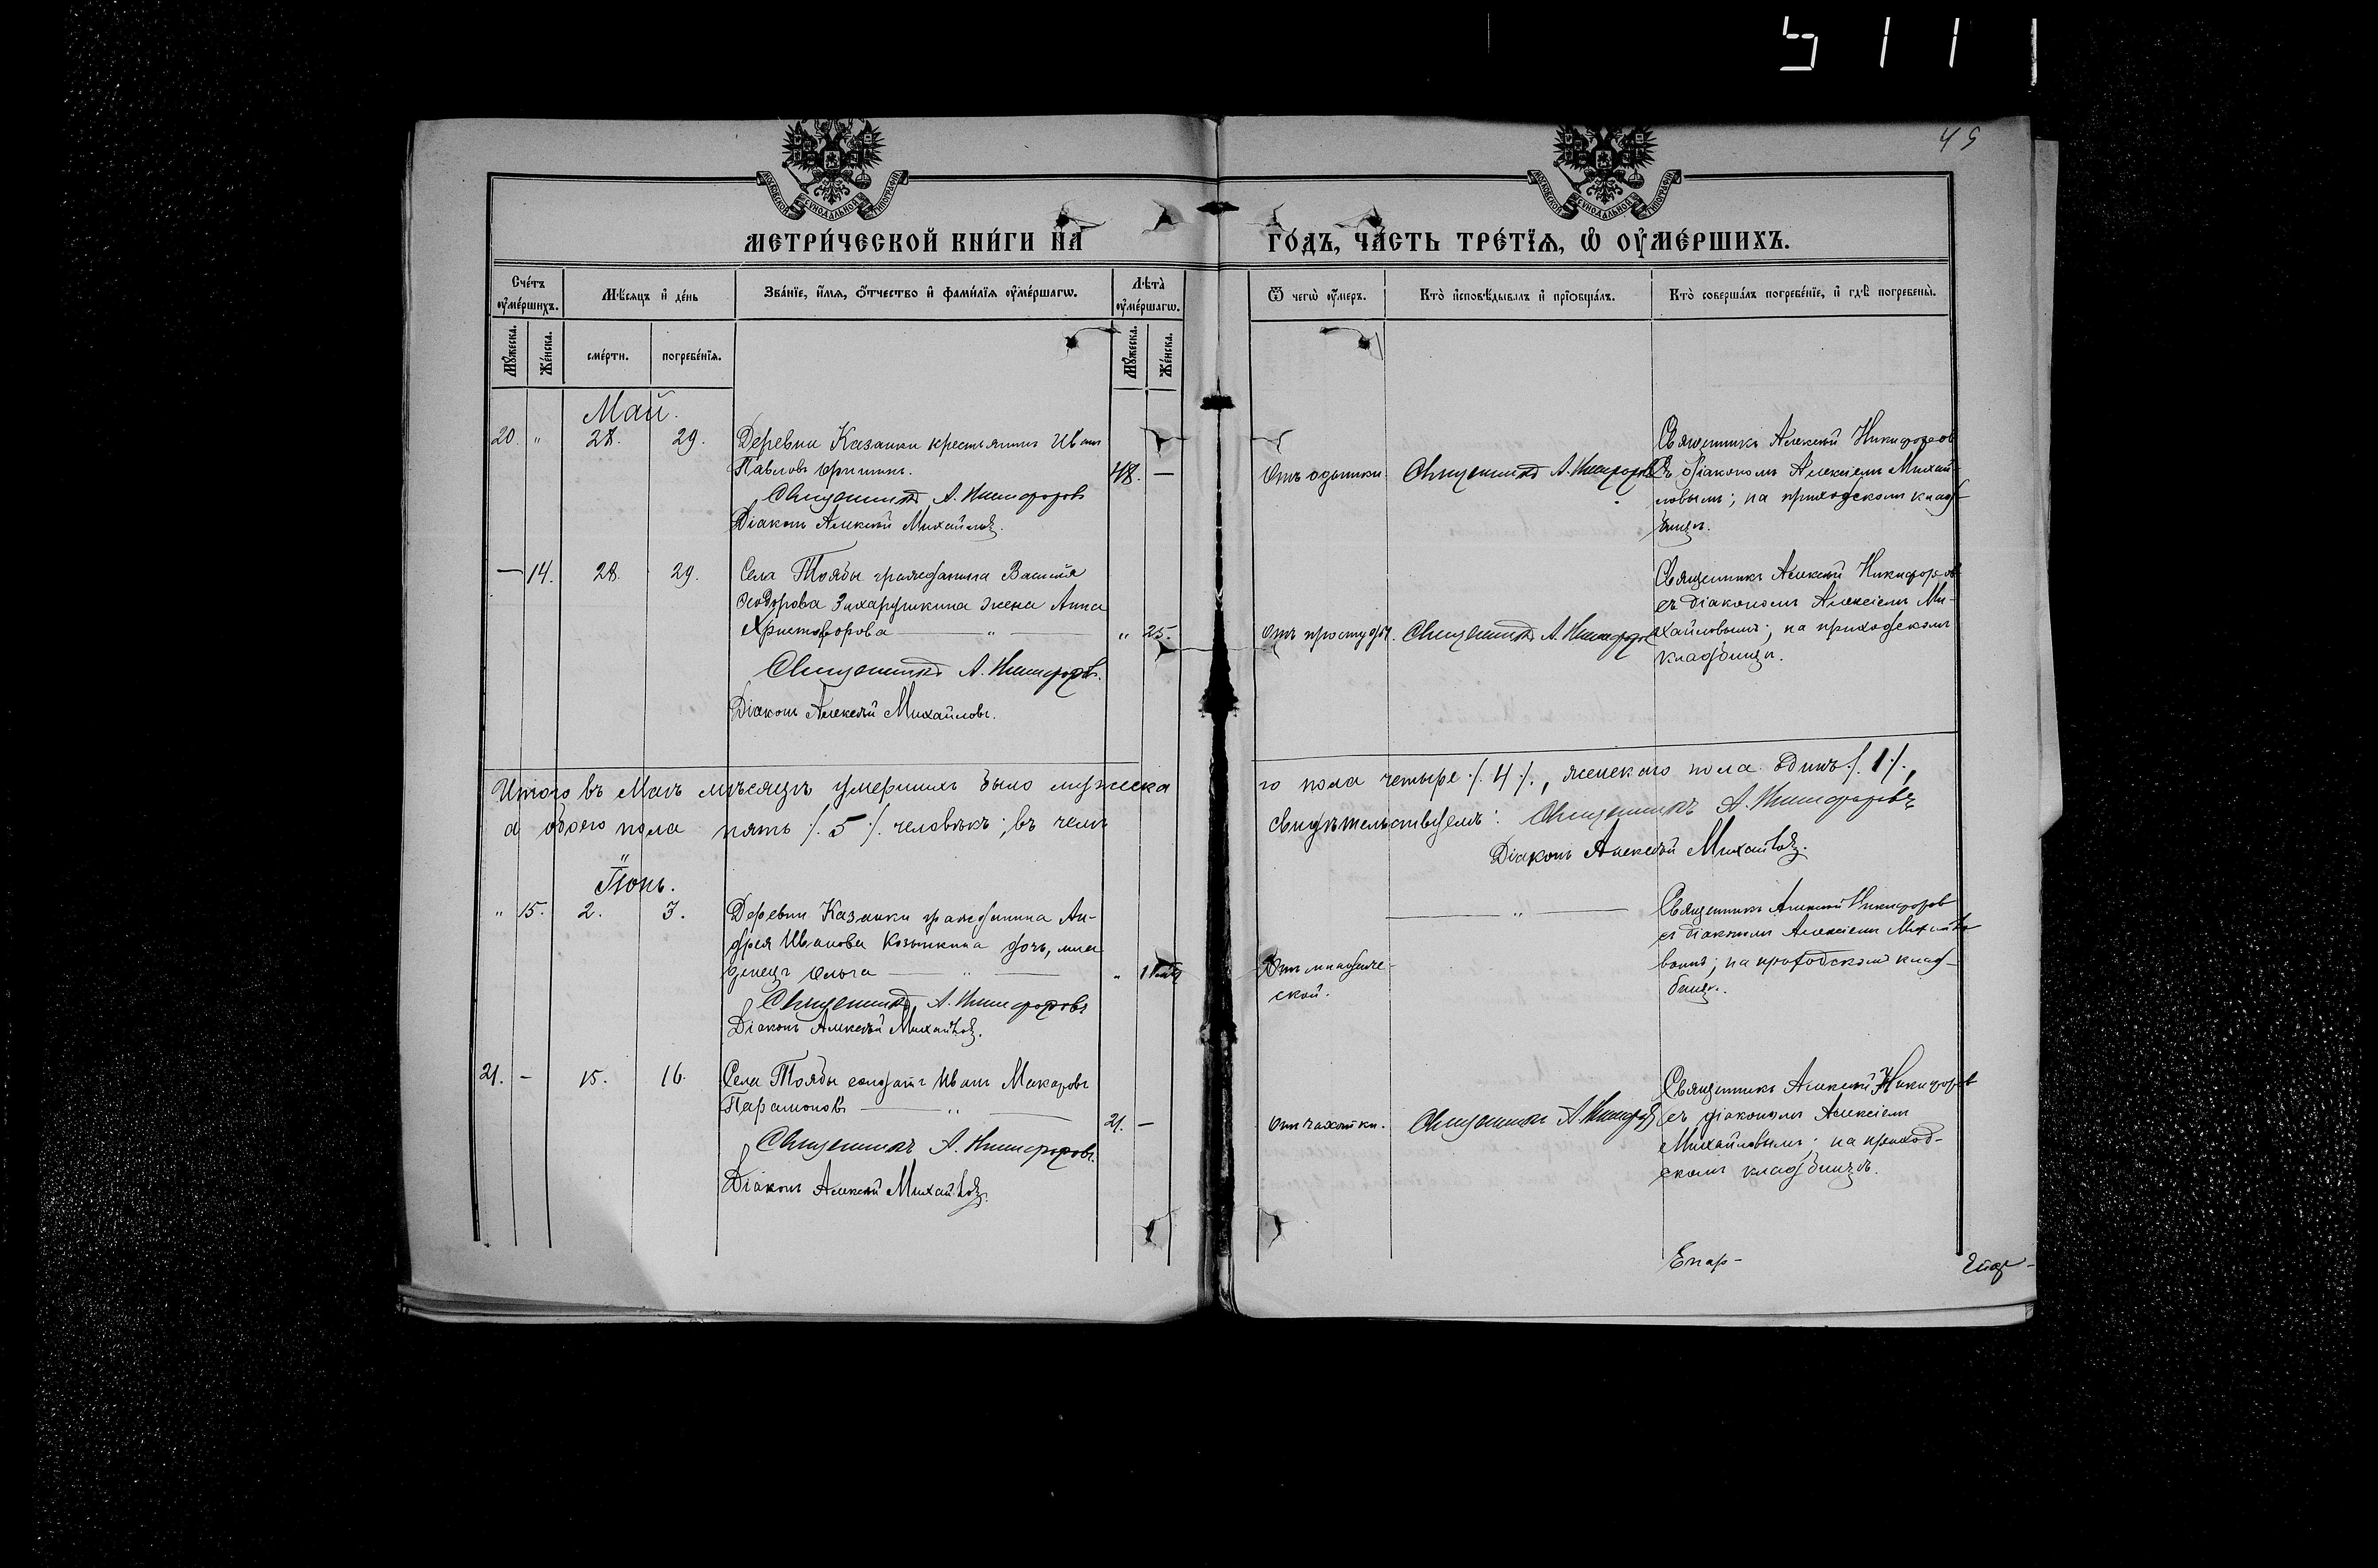 5 1 1 1
45
МОСКОВСКОЙ СѴНОДАЛЬНОЙ ТИПОГРАФІИ
МОСКОВСКОЙ СѴНОДАЛЬНОЙ ТИПОГРАФІИ
МЕТРИ́ЧЕСКОЙ КНИ́ГИ НА
ГО́ДЪ, ЧА́СТЬ ТРЕ́ТЇѦ, Ѡ҆ ОУ҆МЕ́РШИХЪ.
Сче́тъ оу҆ме́ршихъ.
Мѣ́сѧцъ и҆ де́нь
Зва́нїе, и҆́мѧ, ѻ҆́тчество и҆ фами́лїѧ оу҆ме́ршагѡ.
Лѣ́та оу҆ме́ршагѡ.
Ѿ чегѡ̀ оу҆́меръ.
Кто̀ и҆сповѣ́дывалъ и҆ прїѻбща́лъ.
Кто̀ соверша́лъ погребе́нїе, и҆ гдѣ̀ погребены̀.
Мꙋ́жеска.
Же́нска.
сме́рти.
погребе́нїѧ.
Мꙋ́жеска.
Же́нска.
Май.
20. „ 28. 29.
Деревни Казанки крестьянинъ Иванъ
Павловъ
48. —
Священникъ А. Никифоровъ
Діаконъ Алексѣй Михайловъ.
Отъ одышки.
Священникъ А. Никифоровъ
Священникъ Алексѣй Никифоровъ
съ діакономъ Алексіемъ Михай-
ловымъ; на приходскомъ клад-
бищѣ.
— 14. 28. 29.
Села Тоябы гражданина Василія
Ѳеодорова Захарушкина жена Анна
Христофорова — „ —
„ 25.
Священникъ А. Никифоровъ.
Діаконъ Алексѣй Михайловъ.
Отъ простуды.
Священникъ А. Никифоровъ
Священникъ Алексѣй Никифоровъ
съ діакономъ Алексіемъ Ми-
хайловымъ; на приходскомъ
кладбищѣ.
Итого въ Маѣ мѣсяцѣ умершихъ было мужеска
го пола четыре /. 4 /., женскаго пола одинъ /. 1 /.,
а обоего пола пять /. 5 /. человѣкъ; въ чемъ
свидѣтельствуемъ: Священникъ А. Никифоровъ
Діаконъ Алексѣй Михайловъ.
Іюнь.
„ 15. 2. 3.
Деревни Казанки гражданина Ан-
дрея Иванова дочь, мла
денецъ Ольга — „ —
„ 1
Священникъ А. Никифоровъ
Діаконъ Алексѣй Михайловъ.
Отъ младенче-
ской.
— „ —
Священникъ Алексѣй Никифоровъ
съ діакономъ Алексіемъ Михайло
вымъ; на приходскомъ клад-
бищѣ.
21. — 15. 16.
Села Тоябы солдатъ Иванъ Макаровъ
Парамоновъ — „ —
21. —
Священникъ А. Никифоровъ.
Діаконъ Алексѣй Михайловъ.
Отъ чахотки.
Священникъ А. Никифоровъ
Священникъ Алексѣй Никифоровъ
съ діакономъ Алексіемъ
Михайловымъ; на приход-
скомъ кладбищѣ.
Епар-
Епар-